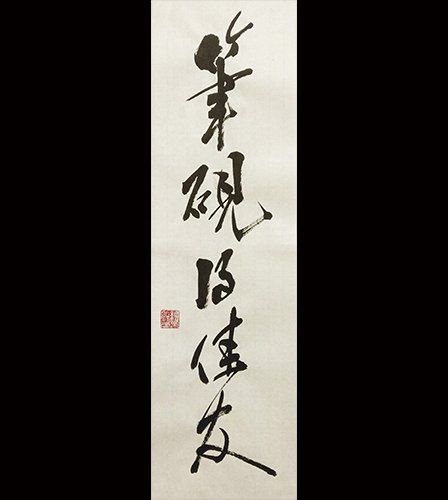 筆硯得佳友